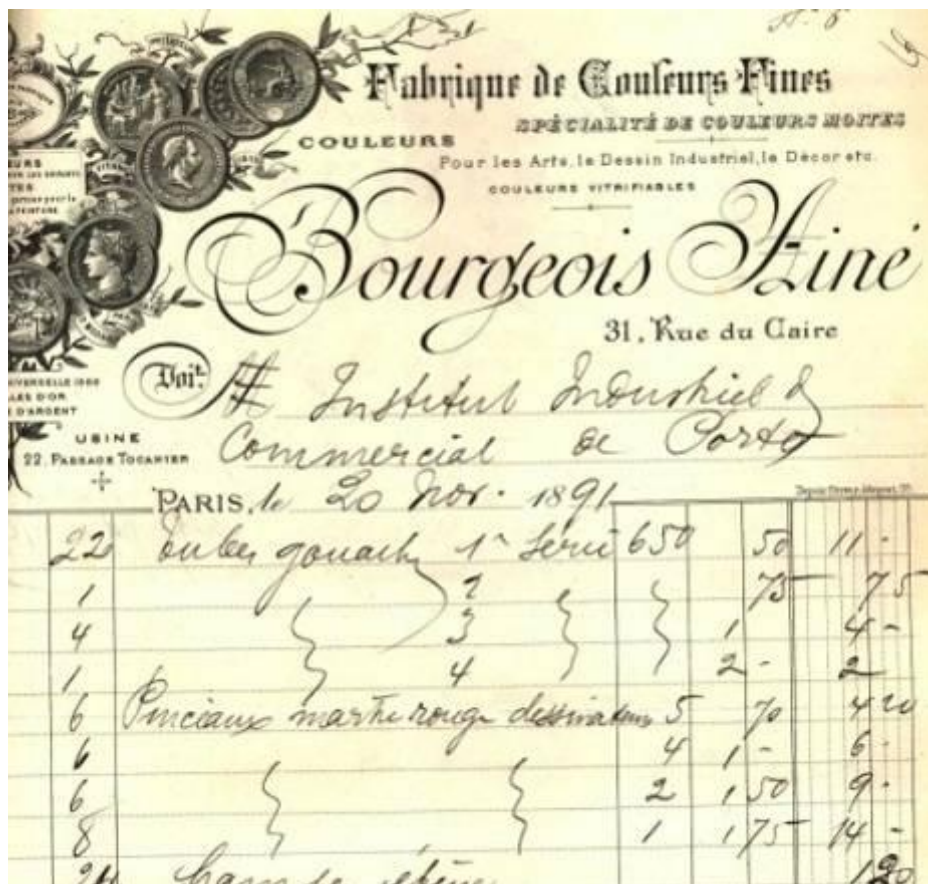 Fabrique de Couleurs Fines
SPÉCIALITÉ DE COULEURS MOITES
COULEURS
Pour les Arts, le Dessin Industriel, le Décor etc.
COULEURS VITRIFIABLES
Bourgeois Aîné
31, Rue du Caire
Doit
Institut Industriel &
Commercial de Porto
USINE
22. PASSAGE TOCANIER
PARIS, le 20 Nov. 1891
22 Tubes gouache 1re Serie 650 50 11 -
1 2 75 75
4 3 1 4 -
1 4 2 - 2
6 Pinceaux martre rouge dessinateurs 5 70 4 20
6 4 1 - 6 -
6 2 1 50 9 -
8 1 1 75 14 -
24 1 20